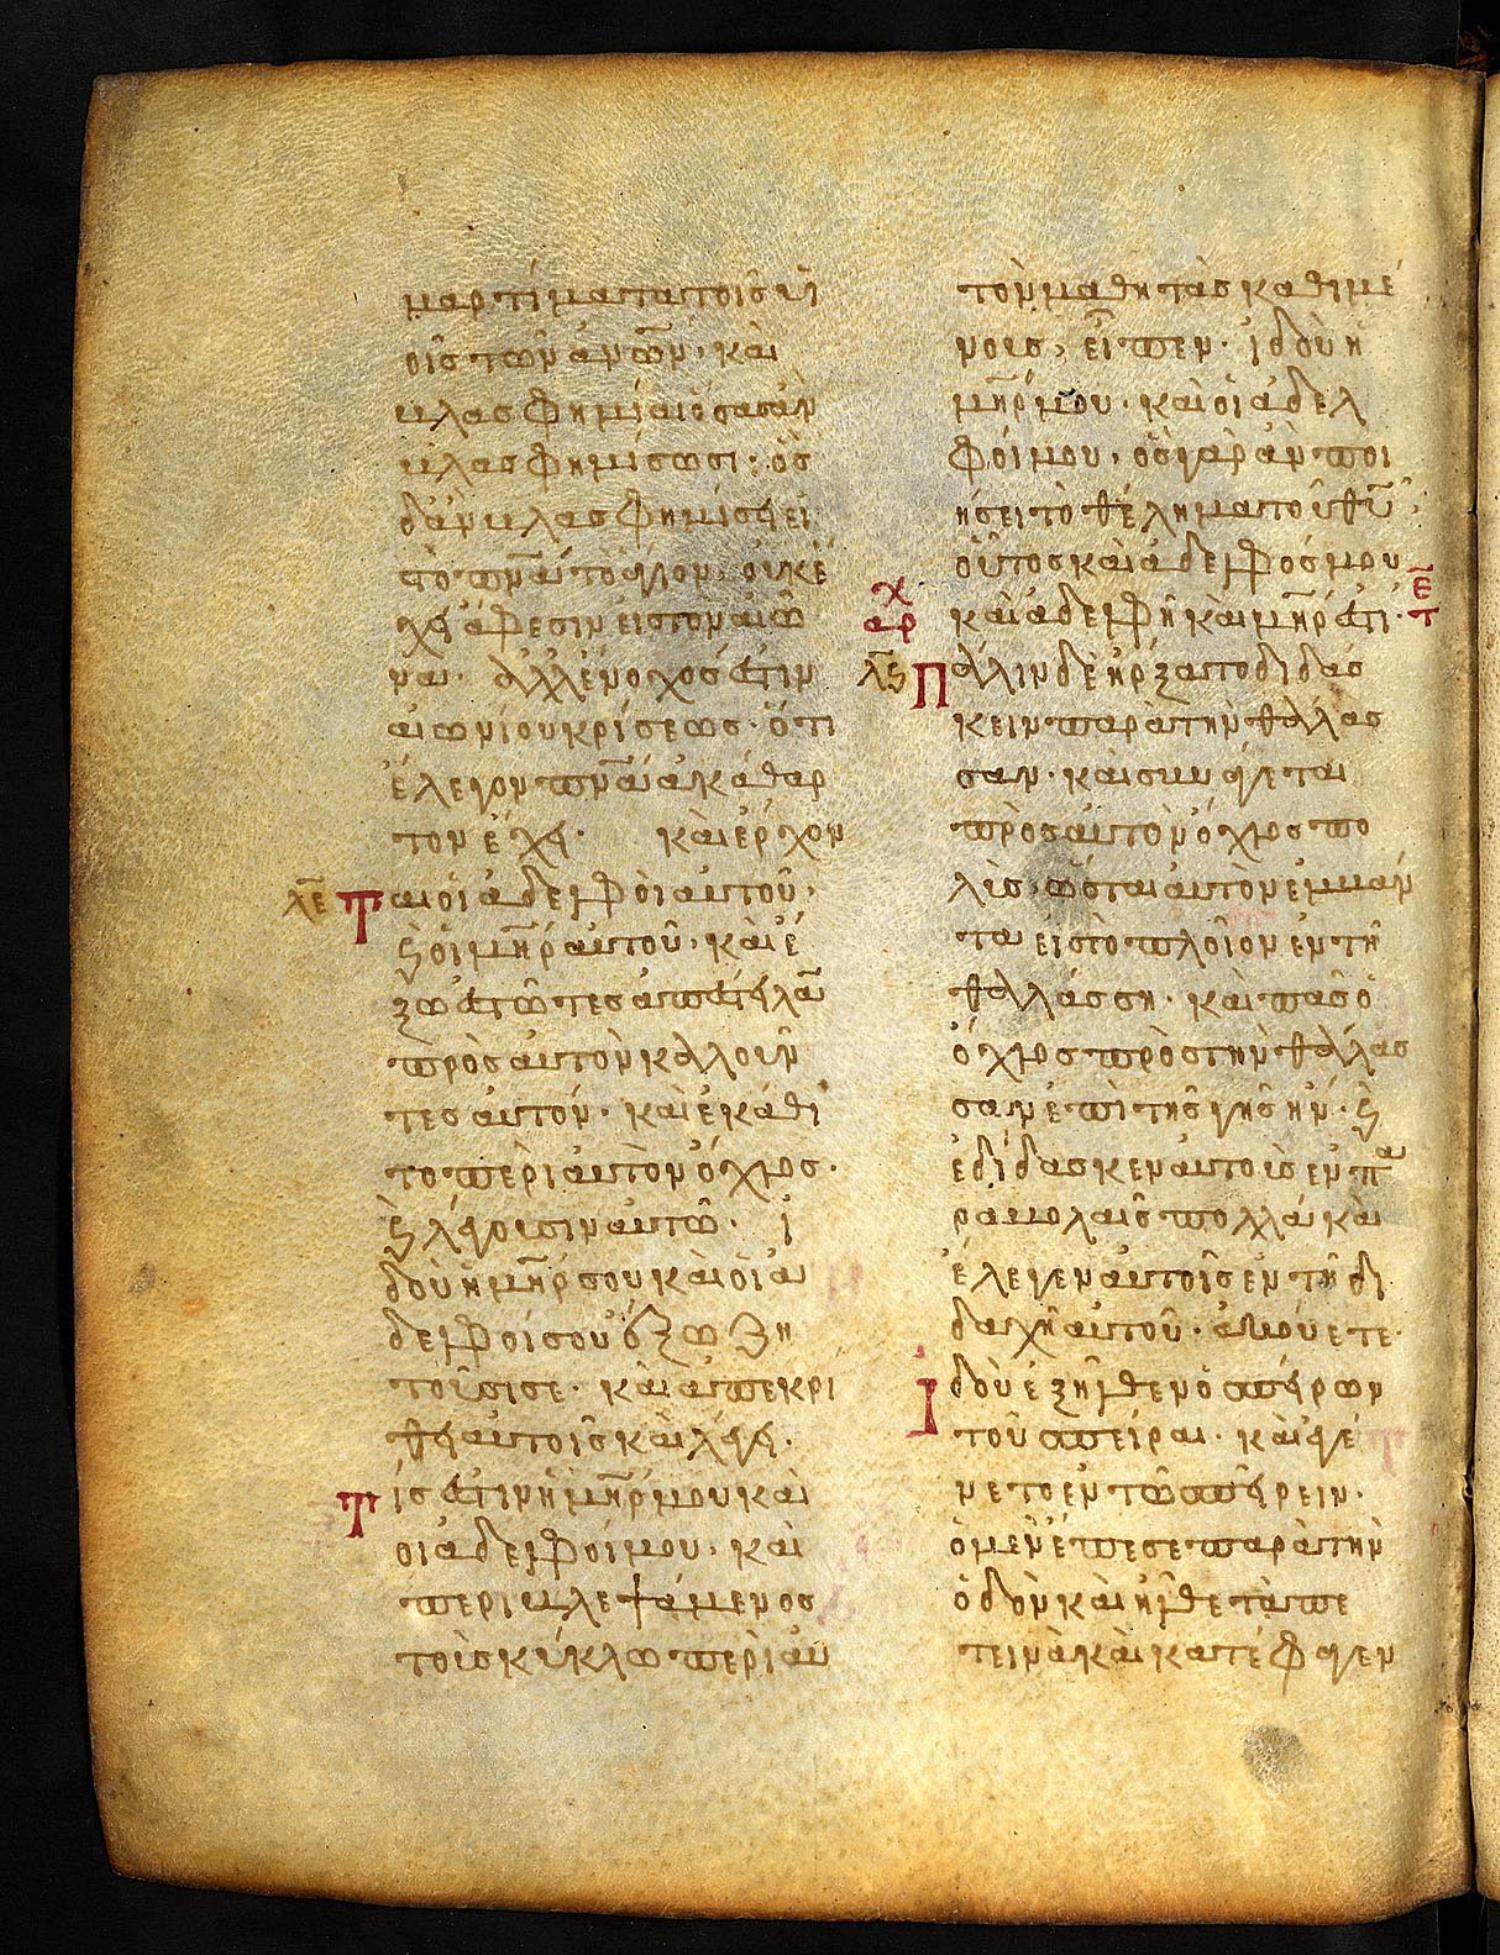 μαρτίματα τοῖσ υἱ
οῖσ τῶν ἀν̅ω̅ν· και
βλασφημίαι ὅσασ ἀν
βλασφημίσωσι· ὅσ
δἂν βλασφημίσει εἰ
το πν̅α τὸ ἅγιον, οὐκ ἔ
χει ἄφεσιν εἰσ τὸν αἰῶ
να· ἀλλ ἔνοχόσ ἐστιν
αἰωνίου κρίσεωσ· ὅτι
ἔλεγον πν̅α ἀκάθαρ
τον ἔχει· καὶ ἔρχον
λ̅ε̅ Ται οἱ ἀδελφὸι αυτοῦ,
ϗ οἱ μη̅ρ αυτοῦ, καὶ ἔ
ξω ἑστῶτεσ ἀπέστειλα̅
πρὸσ αυτὸν καλλουν
τεσ αυτόν· καὶ ἐκάθι
το περὶ αυτον ὄχλοσ·
ϗ λέγουσιν αυτῶ· ἰ
δοὺ ἡ μη̅ρ σου και οἱ α
δελφοί σου ἔξω ζη
τοῦσι σε· και ἀπεκρί
θει αυτοῖσ καὶ λέγει·
Τίσ ἐστιν ἡ μη̅ρ μου και
οι ἀδελφοί μου, και
περιβλεψάμενοσ
τοὺσ κύκλω περὶ αυ
τὸν μαθητὰσ καθιμέ
νουσ, εἶπεν· ἰδοὺ ἡ
μη̅ρ μου· και οἱ ἀδελ
φόι μου, ὃσ γὰρ ἀν ποι
ήσει τὸ θέλημα τοῦ θ̅υ̅,
οὗτοσ και ἀδελφόσ μου
καὶ ἀδελφὴ καὶ μη̅ρ ἐστι· τ̅ε̅
αρχ
λ̅ϛ̅ Πάλιν δὲ ἤρξατο διδάσ
κειν παρὰ τὴν θάλλασ
σαν· και συν άγεται
πρὸσ αυτὸν ὄχλοσ πο
λὺσ, ὥσται αυτὸν ἐμβάν
τα εἰσ τὸ πλοῖον ἐν τῆ
θαλλάσση· καὶ πασ ὁ
ὄχλοσ πρὸσ τὴν θάλλασ
σαν ἐπὶ τῆσ γῆσ ἦν· ϗ
ἐδίδασκεν αυτοὺσ ἐν πα
ραβολαῖσ πολλά καὶ
ἔλεγεν αυτοῖσ ἐν τῆ δι
δαχῆ αυτοῦ· ἀκούετε·
Ἰδοὺ ἐξῆλθεν ὁ σπείρων
τοῦ σπεῖραι· και ἐγέ
νετο ἐν τῶ σπείρειν·
ὁ μεν ἔπεσε παρὰ τὴν
ὁδὸν καὶ ἦλθε τὰ πε
τεινὰ καὶ κατέφαγεν